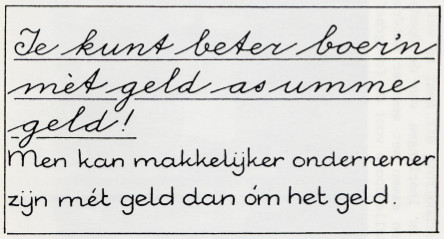 Je kunt beter boer'n
mèt geld as umme
geld!
Men kan makkelijker ondernemer
zijn mét geld dan óm het geld.